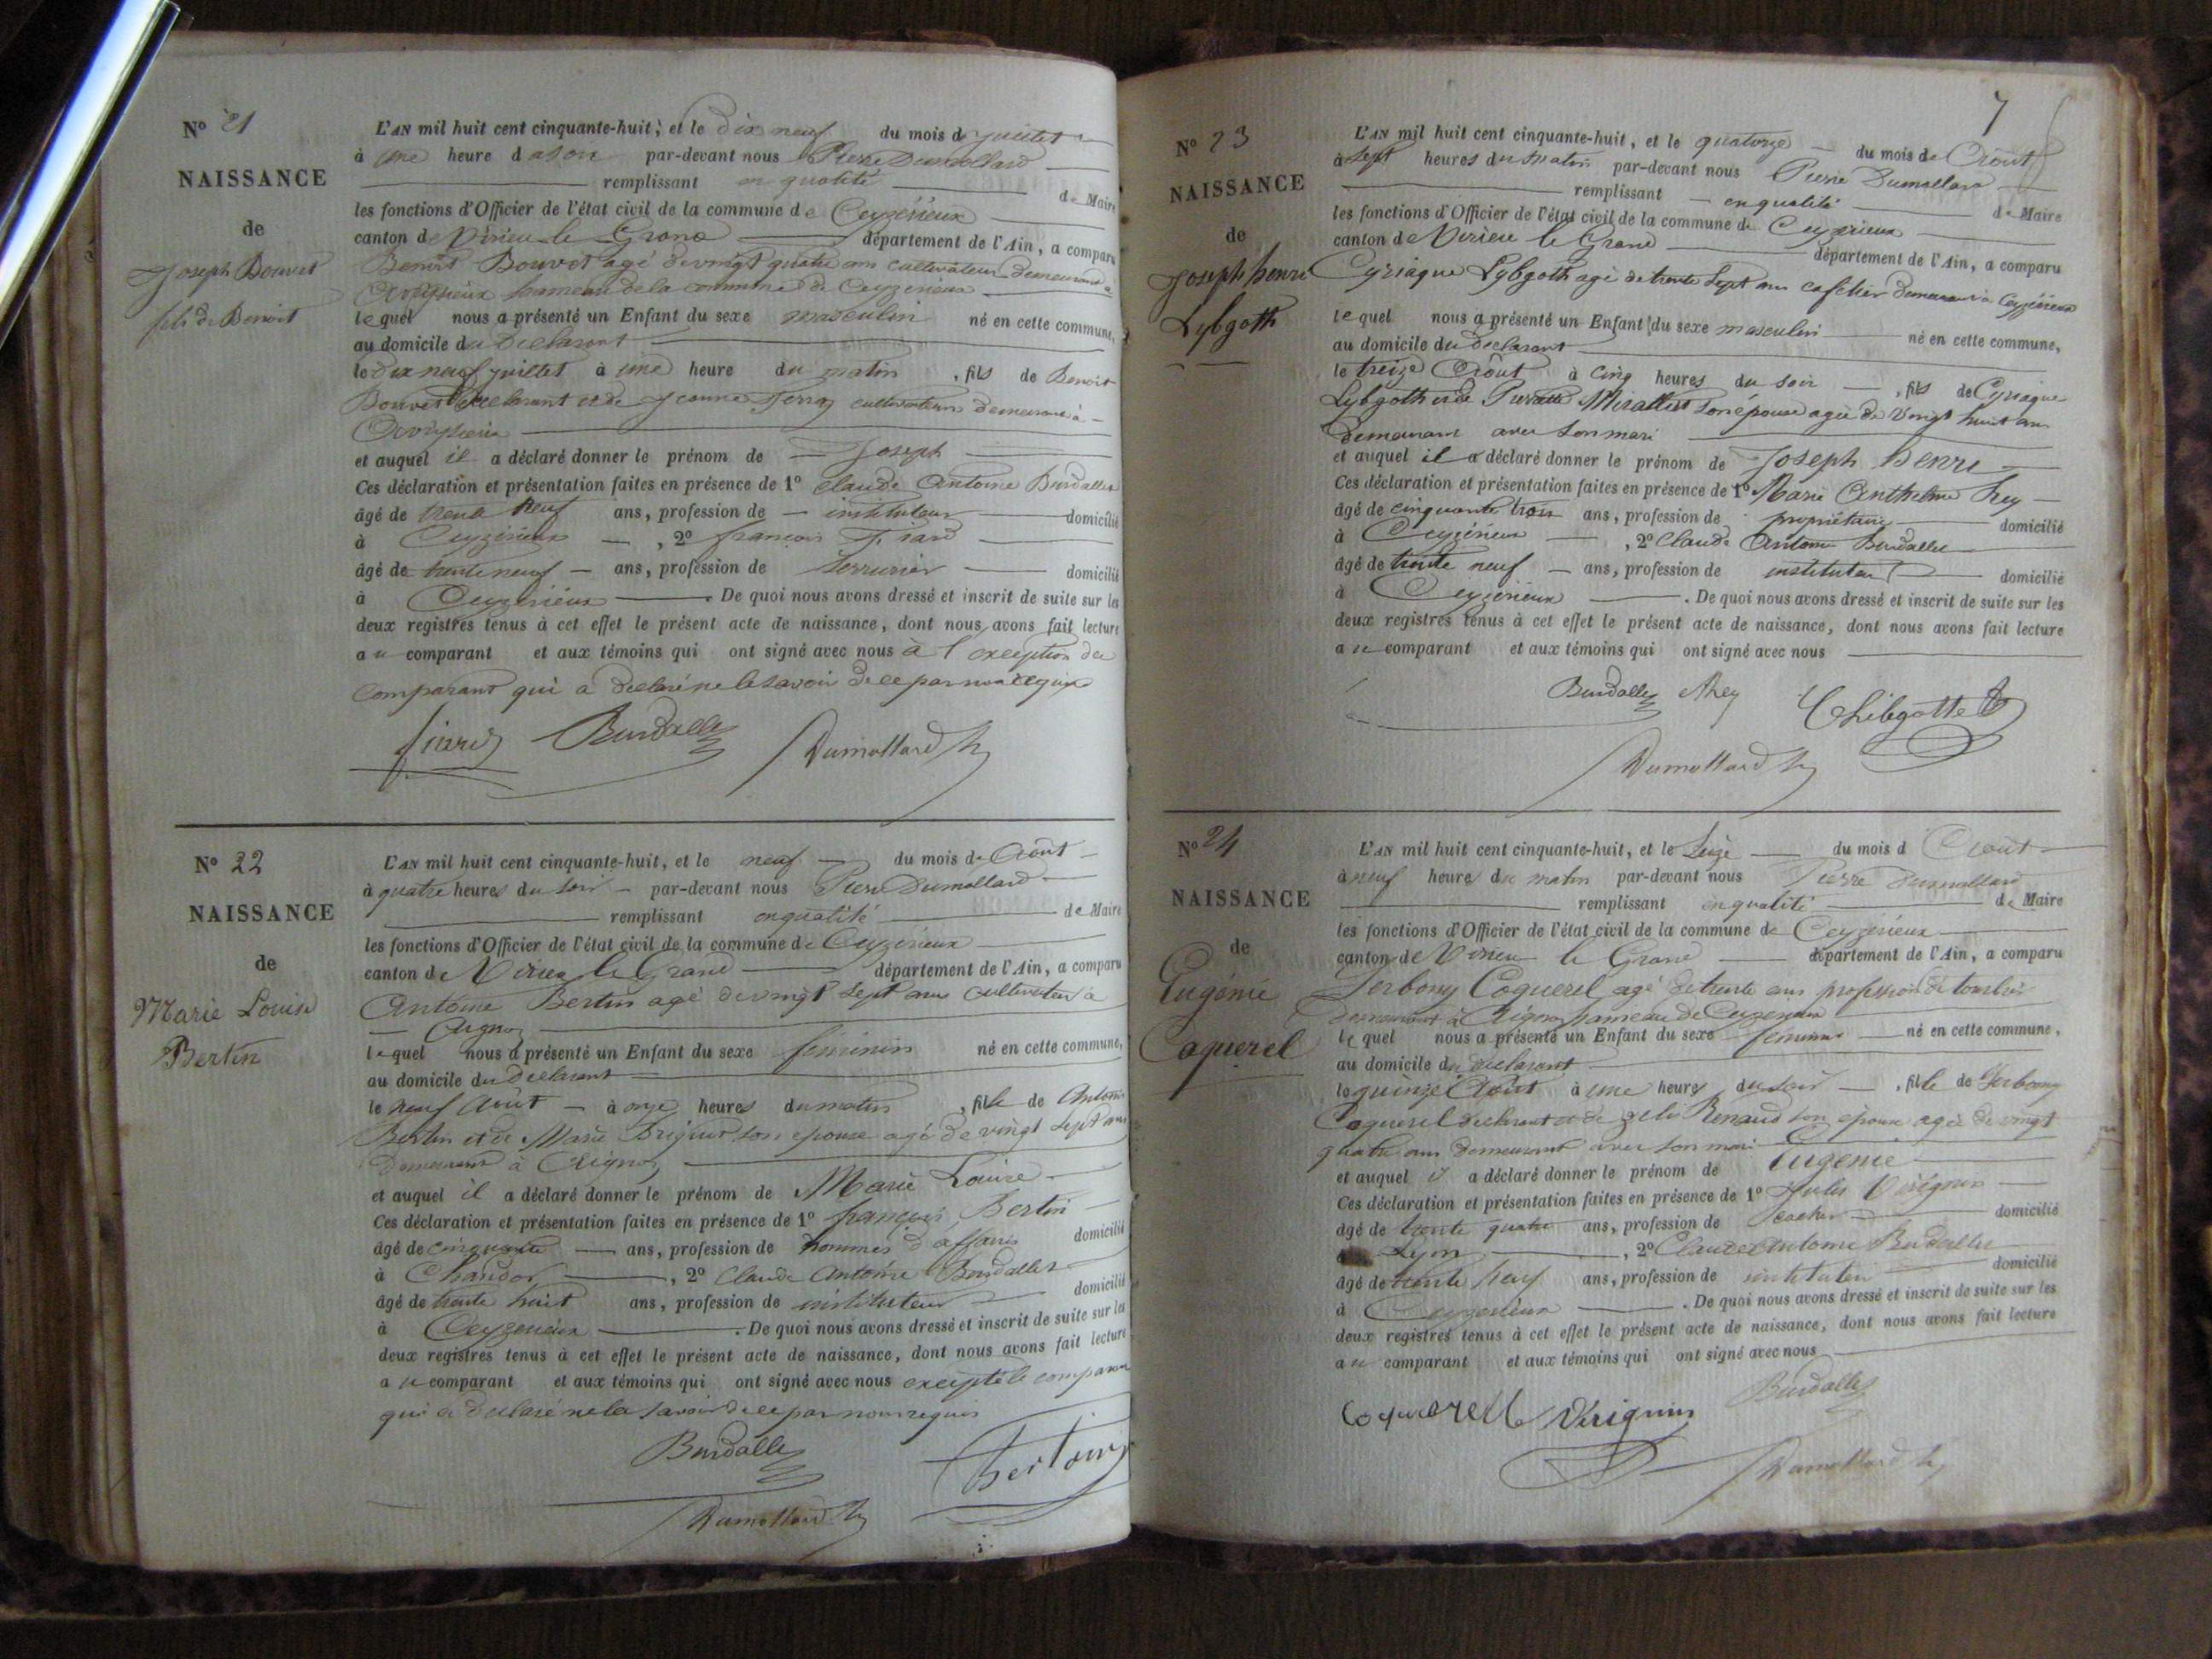 N° 21
NAISSANCE
de
Joseph Bouvet
fils de Benoit
L'AN mil huit cent cinquante-huit, et le dix neuf du mois de juillet
à une heure du soir par-devant nous Pierre Dumollard
remplissant en qualité de Maire
les fonctions d'Officier de l'état civil de la commune de Ceyzérieux
canton de Virieu le Grand département de l'Ain, a comparu
Benoit Bouvet agé de vingt quatre ans cultivateur demeurant à
hameau de la commune de Ceyzerieux
lequel nous a présenté un Enfant du sexe masculin né en cette commune,
au domicile du declarant
le dix neuf juillet à une heure du matin, fils de Benoit
Bouvet declarant et de Jeanne cultivateurs demeurant à
et auquel il a déclaré donner le prénom de Joseph
Ces déclaration et présentation faites en présence de 1° Claude Antoine Burdallet
âgé de trente neuf ans, profession de instituteur domicilié
à Ceyzérieux, 2° françois Fiard
âgé de trente neuf ans, profession de serrurier domicilié
à Ceyzérieux. De quoi nous avons dressé et inscrit de suite sur les
deux registres tenus à cet effet le présent acte de naissance, dont nous avons fait lecture
au comparant et aux témoins qui ont signé avec nous à l'exception du
comparant qui a declaré ne le savoir de ce par nous requis
fiard Burdallet Dumollard
N° 22
NAISSANCE
de
Marie Louise
Bertin
L'AN mil huit cent cinquante-huit, et le neuf du mois de Août
à quatre heures du soir par-devant nous Pierre Dumollard
remplissant en qualité de Maire
les fonctions d'Officier de l'état civil de la commune de Ceyzérieux
canton de Virieu le Grand département de l'Ain, a comparu
Antoine Bertin agé de vingt sept ans cultivateur à
Aignoz
lequel nous a présenté un Enfant du sexe feminin né en cette commune,
au domicile du declarant
le neuf Août à onze heures du matin, fille de Antoine
Bertin et de Marie son epouse agé de vingt sept ans
demeurant à Aignoz
et auquel il a déclaré donner le prénom de Marie Louise
Ces déclaration et présentation faites en présence de 1° françois Bertin
âgé de cinquante ans, profession de hommes d'affaires domicilié
à, 2° Claude Antoine Burdallet
âgé de trente huit ans, profession de instituteur domicilié
à Ceyzerieux. De quoi nous avons dressé et inscrit de suite sur les
deux registres tenus à cet effet le présent acte de naissance, dont nous avons fait lecture
au comparant et aux témoins qui ont signé avec nous excepté le comparant
qui a declaré ne le savoir de ce par nous requis
Burdallet Bertin
Dumollard
7
N° 23
NAISSANCE
de
Joseph henri
Lybgoth
L'AN mil huit cent cinquante-huit, et le quatorze du mois de Août
à sept heures du matin par-devant nous Pierre Dumollard
remplissant en qualité de Maire
les fonctions d'Officier de l'état civil de la commune de Ceyzérieux
canton de Virieu le Grand département de l'Ain, a comparu
Cyriaque Lybgoth agé de trente sept ans cafetier demeurant à Ceyzérieux
lequel nous a présenté un Enfant du sexe masculin né en cette commune,
au domicile du declarant
le treize Août à cinq heures du soir, fils de Cyriaque
Lybgoth et de son épouse agée de vingt huit ans
demeurant avec son mari
et auquel il a déclaré donner le prénom de Joseph henri
Ces déclaration et présentation faites en présence de 1° Marie Anthelme hey
âgé de cinquante trois ans, profession de propriétaire domicilié
à Ceyzérieux, 2° Claude Antoine Burdallet
âgé de trente neuf ans, profession de instituteur domicilié
à Ceyzérieux. De quoi nous avons dressé et inscrit de suite sur les
deux registres tenus à cet effet le présent acte de naissance, dont nous avons fait lecture
au comparant et aux témoins qui ont signé avec nous
Burdallet
Dumollard
N° 24
NAISSANCE
de
Eugénie
Coquerel
L'AN mil huit cent cinquante-huit, et le seize du mois d Août
à neuf heures du matin par-devant nous Pierre Dumollard
remplissant en qualité de Maire
les fonctions d'Officier de l'état civil de la commune de Ceyzérieux
canton de Virieu le Grand département de l'Ain, a comparu
Coquerel agé de trente ans profession de
demeurant à Aignoz hameau de Ceyzerieux
lequel nous a présenté un Enfant du sexe feminin né en cette commune,
au domicile du declarant
le quinze Août à une heures du soir, fille de
Coquerel declarant et de Renaud son épouse agée de vingt
quatre ans demeurant avec son mari
et auquel il a déclaré donner le prénom de Eugenie
Ces déclaration et présentation faites en présence de 1° Jules Virignin
âgé de trente quatre ans, profession de cocher domicilié
à Lyon, 2° Claude Antoine Burdallet
âgé de trente neuf ans, profession de instituteur domicilié
à Ceyzerieux. De quoi nous avons dressé et inscrit de suite sur les
deux registres tenus à cet effet le présent acte de naissance, dont nous avons fait lecture
au comparant et aux témoins qui ont signé avec nous
Burdallet
Coquerelle Virignin
Dumollard